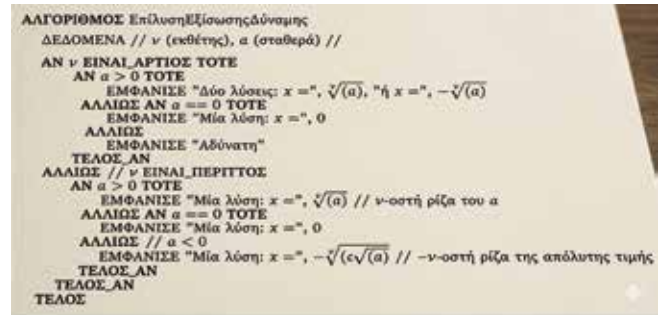 ΑΛΓΟΡΙΘΜΟΣ ΕπίλυσηΕξίσωσηςΔύναμης
ΔΕΔΟΜΕΝΑ // ν (εκθέτης), α (σταθερά) //
ΑΝ ν ΕΙΝΑΙ_ΑΡΤΙΟΣ ΤΟΤΕ
ΑΝ α > 0 ΤΟΤΕ
ΕΜΦΑΝΙΣΕ "Δύο λύσεις: x =", ᵛ√(α), "ή x =", −ᵛ√(α)
ΑΛΛΙΩΣ ΑΝ α == 0 ΤΟΤΕ
ΕΜΦΑΝΙΣΕ "Μία λύση: x =", 0
ΑΛΛΙΩΣ
ΕΜΦΑΝΙΣΕ "Αδύνατη"
ΤΕΛΟΣ_ΑΝ
ΑΛΛΙΩΣ // ν ΕΙΝΑΙ_ΠΕΡΙΤΤΟΣ
ΑΝ α > 0 ΤΟΤΕ
ΕΜΦΑΝΙΣΕ "Μία λύση: x =", ᵛ√(α) // ν-οστή ρίζα του α
ΑΛΛΙΩΣ ΑΝ α == 0 ΤΟΤΕ
ΕΜΦΑΝΙΣΕ "Μία λύση: x =", 0
ΑΛΛΙΩΣ // α < 0
ΕΜΦΑΝΙΣΕ "Μία λύση: x =", −ᵛ√(ς√(α) // −ν-οστή ρίζα της απόλυτης τιμής
ΤΕΛΟΣ_ΑΝ
ΤΕΛΟΣ_ΑΝ
ΤΕΛΟΣ